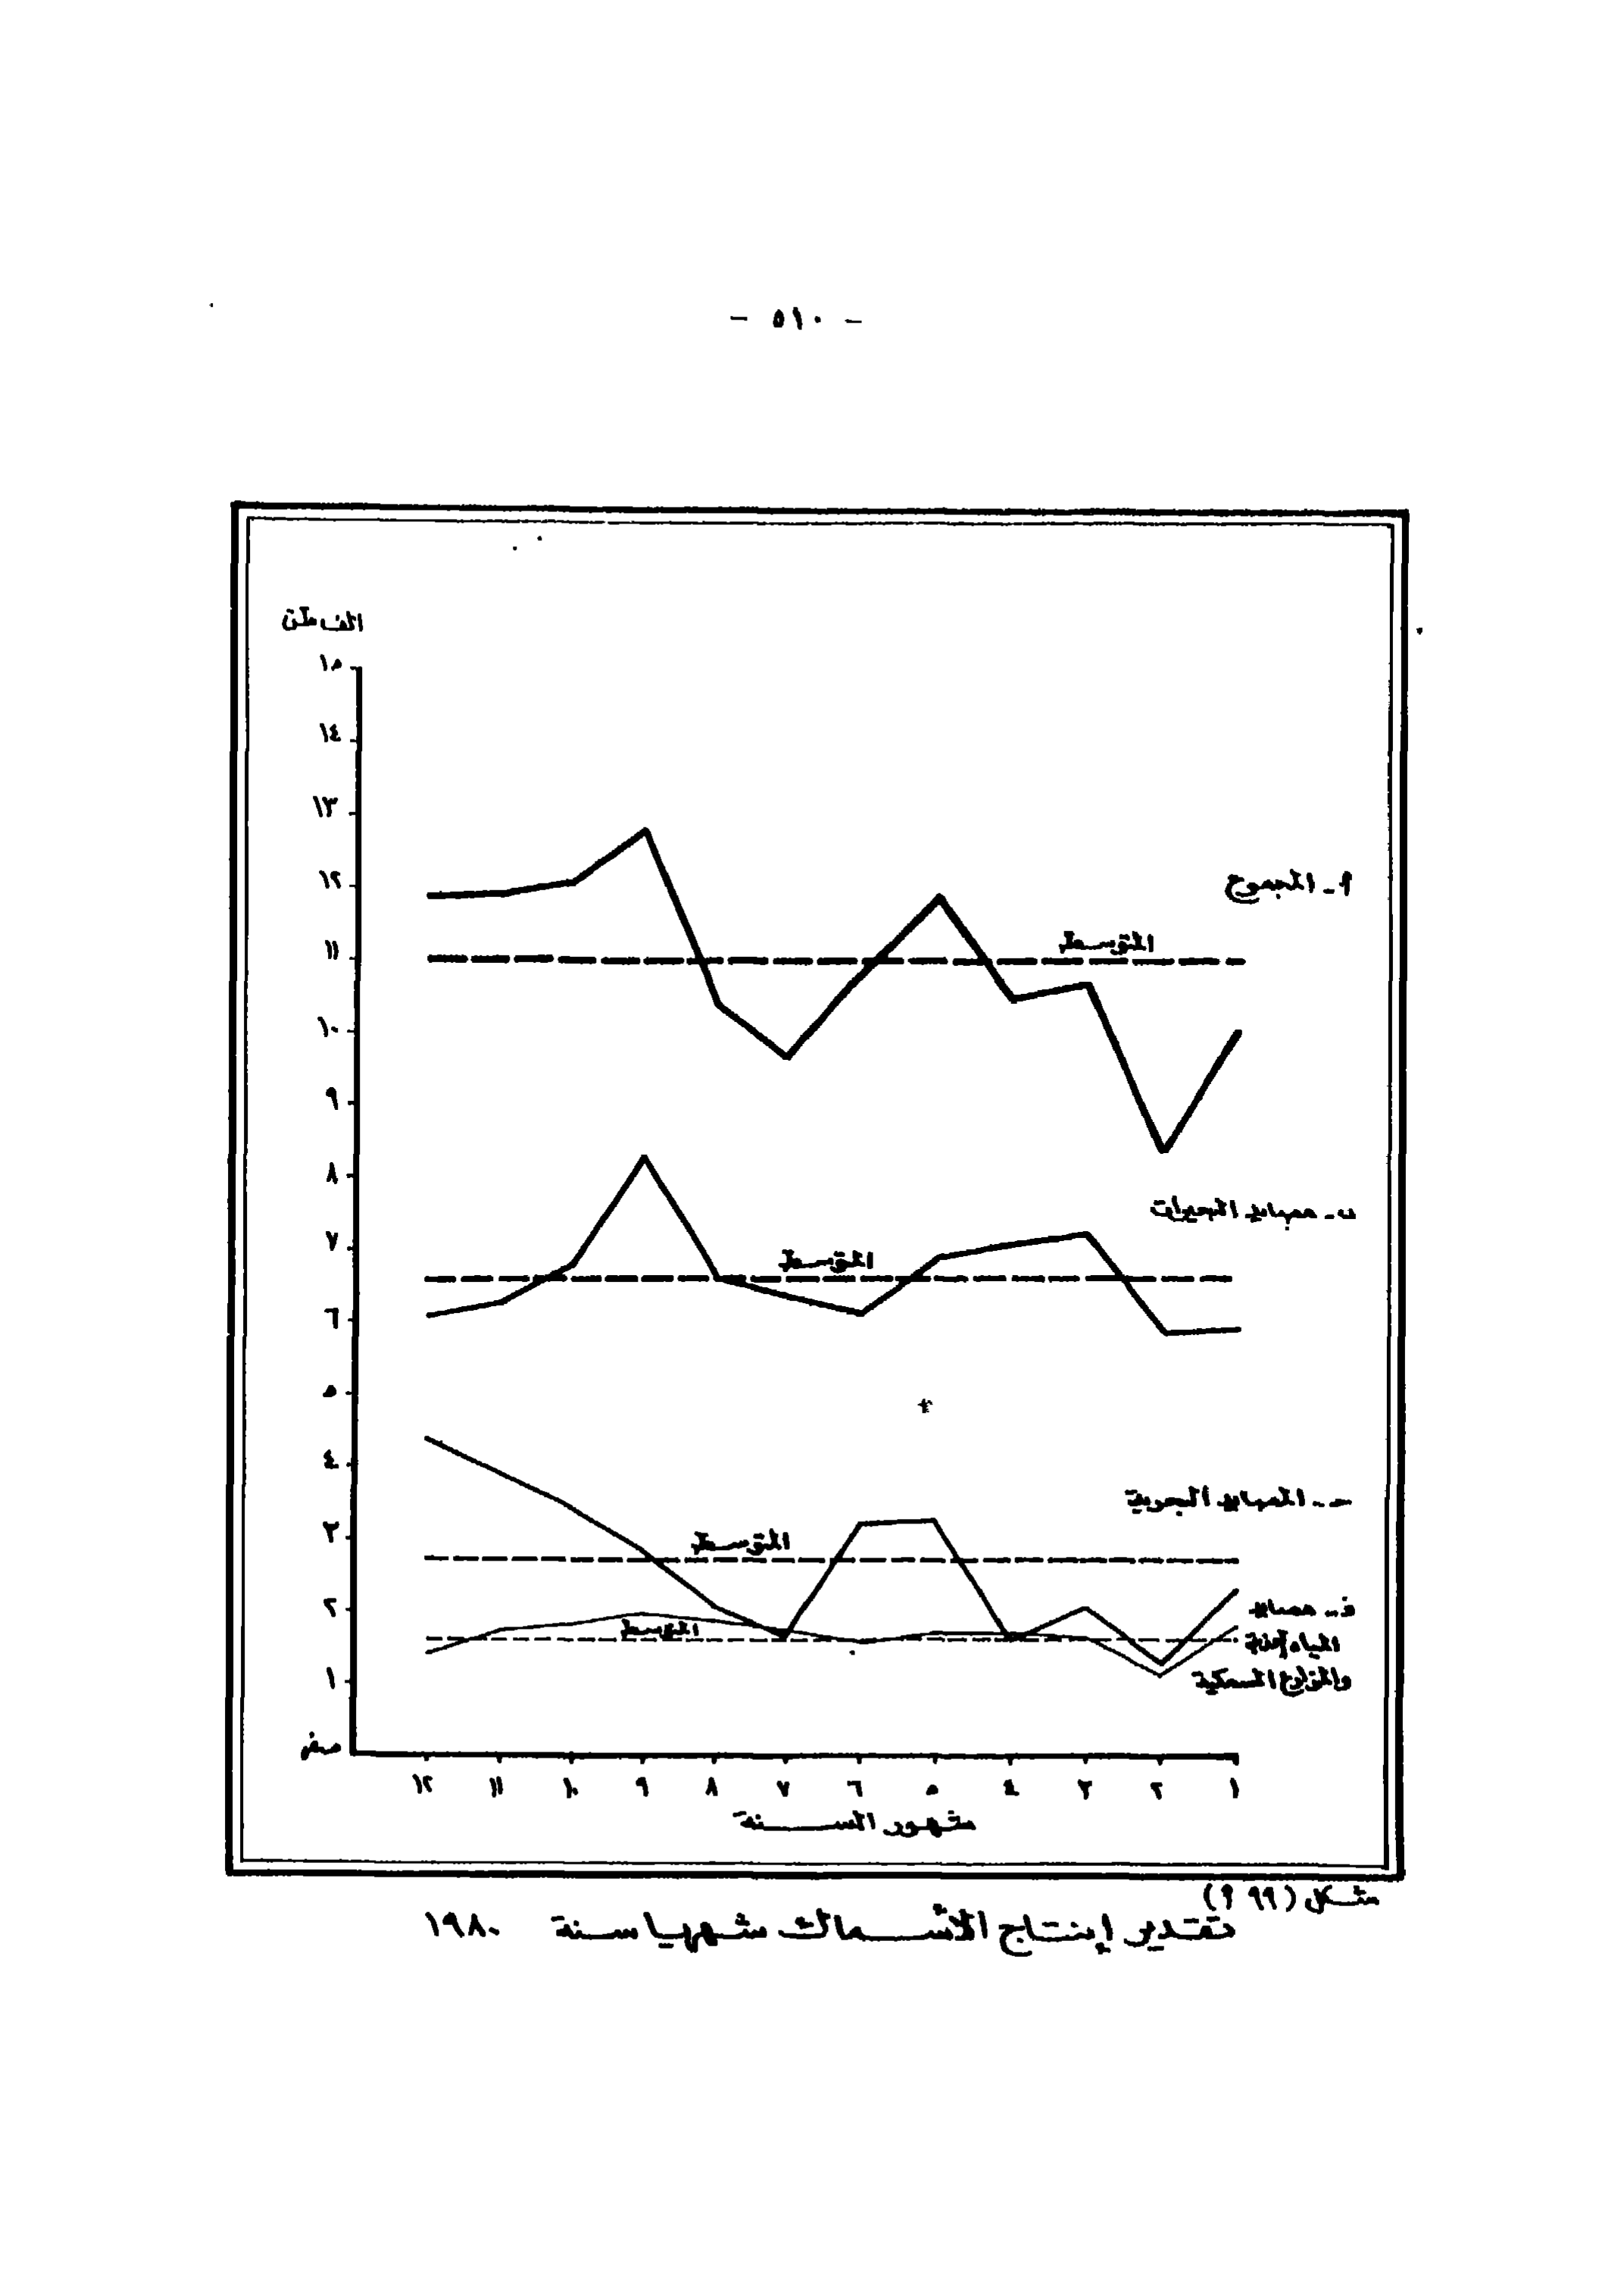 - ٥١٠ -
الف طن
١٥
١٤
١٣
١٢
١١
١٠
٩
٨
٧
٦
٥
٤
٣
٢
١
صفر
أ - المجموع
المتوسط
ب - مصايد البحيرات
المتوسط
ج - المصايد البحرية
المتوسط
د - مصايد
المياه العذبة
والمزارع السمكية
المتوسط
١ ٢ ٣ ٤ ٥ ٦ ٧ ٨ ٩ ١٠ ١١ ١٢
شهور السنة
شكل (٩٩ أ)
تقدير إنتاج الأسماك شهريا سنة ١٩٨٠